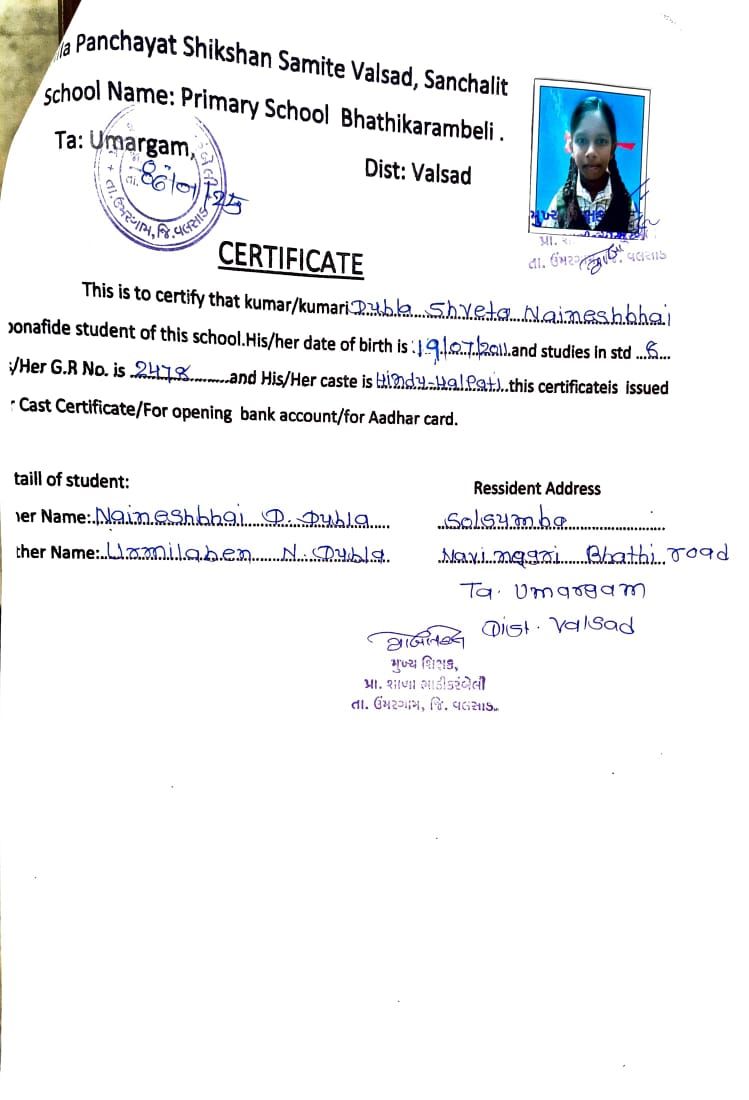 la Panchayat Shikshan Samite Valsad, Sanchalit
School Name: Primary School Bhathikarambeli .
Ta: Umargam,
Dist: Valsad
તા. ઉમરગામ, જિ. વલસાડ
મુખ્ય
પ્રા.
તા. ઉમરગામ, જિ. વલસાડ
CERTIFICATE
This is to certify that kumar/kumari Dubla Shveta Naineshbhai
bonafide student of this school.His/her date of birth is :19/07/2011.and studies in std ...8...
/Her G.R No. is 2478 and His/Her caste is Hindu-Halpati..this certificateis issued
r Cast Certificate/For opening bank account/for Aadhar card.
taill of student:
Ressident Address
her Name:.Naineshbhai D. Dubla
Solsumba
ther Name:..Urmilaben N. Dubla
Navi nagri Bhathi road
Ta. Umargam
Dist. Valsad
મુખ્ય શિક્ષક,
પ્રા. શાળા ભાઠીકરંબેલી
તા. ઉમરગામ, જિ. વલસાડ..